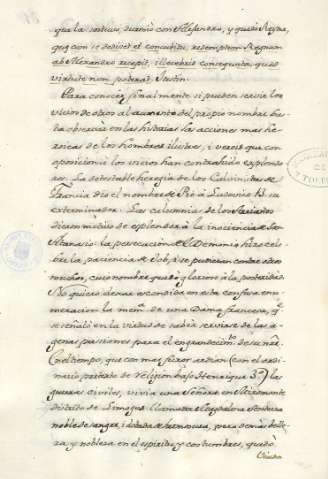 que la sostuvo, durmio con Alexandro, y quedó Reyna,
concubitu, redemptum Regnum
ab Alexandro recepit, illecebris consequuta quod
virtute non poterat Justin.
Para conocer finalmente si pueden servir los
vicios de otros al aumento del propio nombre, bas-
ta observar en las historias las acciones mas he-
roicas de los hombres ilustres, i vereis que con
oposicion à los vicios han contrahido esplendo-
res. La detestable heregia de los Calvinistas de
Francia dio el nombre de à su
exterminador. Las calumnias de los Arrianos
dieron mucho de esplendor à la inocencia de San
Atanasio: la persecucion del Demonio hizo cele-
bre la paciencia de Job, i se pudieran contar otros
muchos, cuio nombre quedó glorioso à la posteridad.
No quiero dexar escondida en esta confusa enu-
meracion la mem.ª de una Dama francesa, q.e
se señaló en la virtud de saber servirse de las a-
genas pasiones para el engrandecim.to de su
En el tiempo, que con mas furor ardian (con el ordi-
nario pretexto de religion baxo Henrique 3.º) las
guerras civiles, vivia una Señora en
distrito de Limoges llamada Magdalena
noble de sangre, i dotada de hermosura, pero demas belle-
za, y nobleza en el espiritu, y costumbres, quedó
Viuda